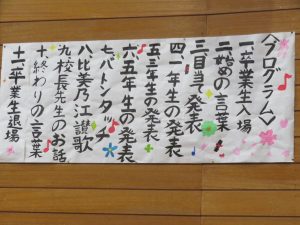 〈プログラム〉
一.卒業生入場
二.始めの言葉
三.目当て発表
四.一年生の発表
五.三年生の発表
六.五年生の発表
七.バトンタッチ
八.比美乃江讃歌
九.校長先生のお話
十.終わりの言葉
十一.卒業生退場